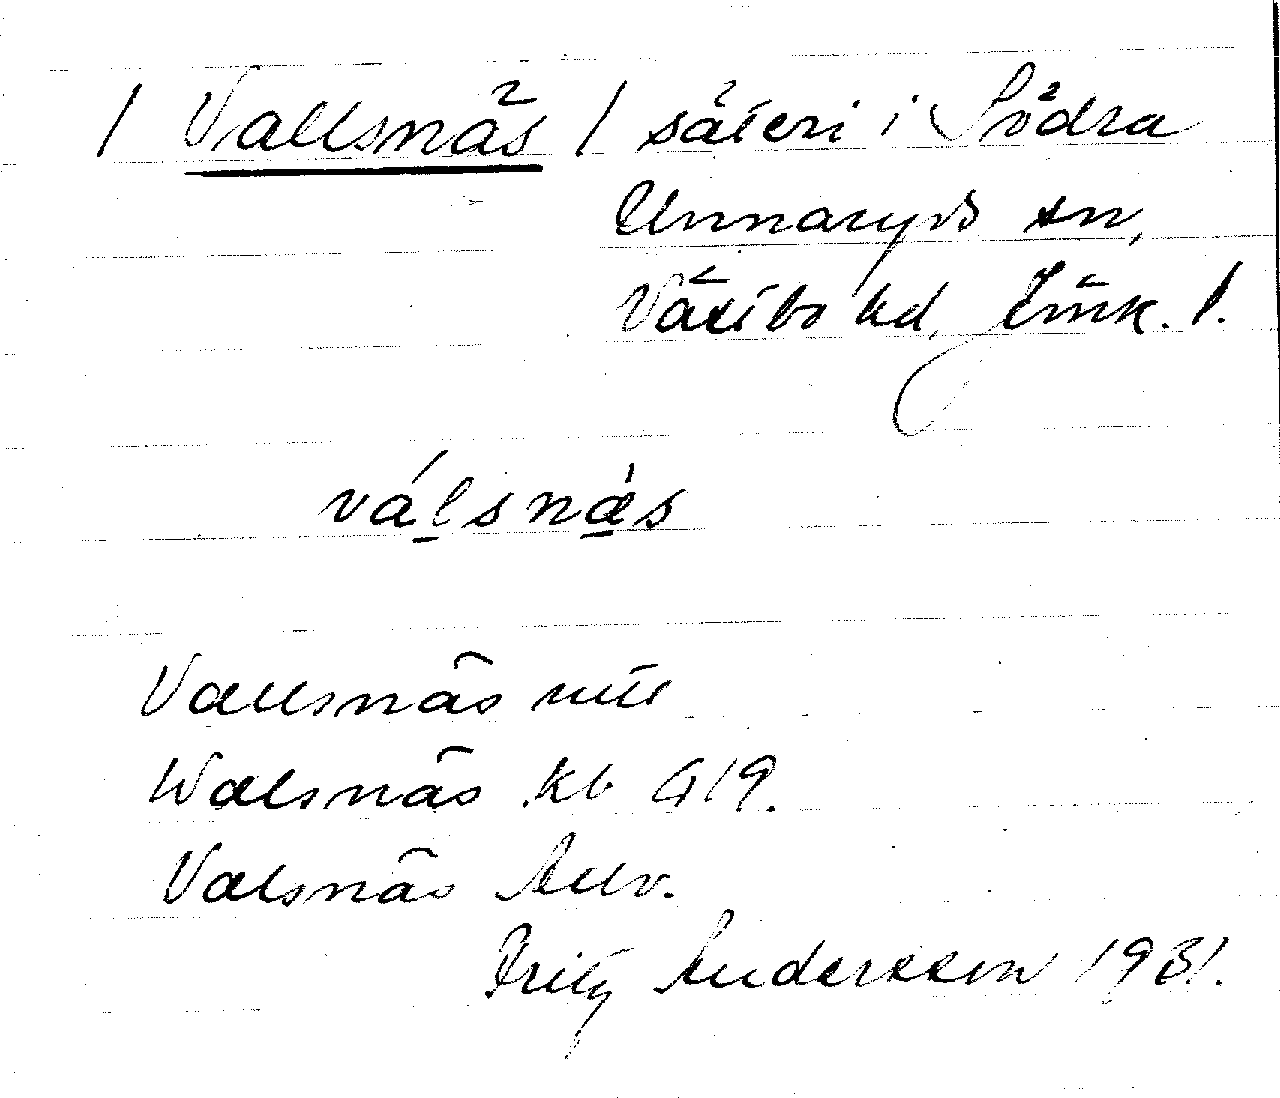 / Vallsnäs / säteri i Södra
Unnaryds sn,
Västbo hd, Jönk. l.
válsnàs
Vallsnäs
Walsnäs kb G 19.
Valsnäs
Fritz Andersson 1931.